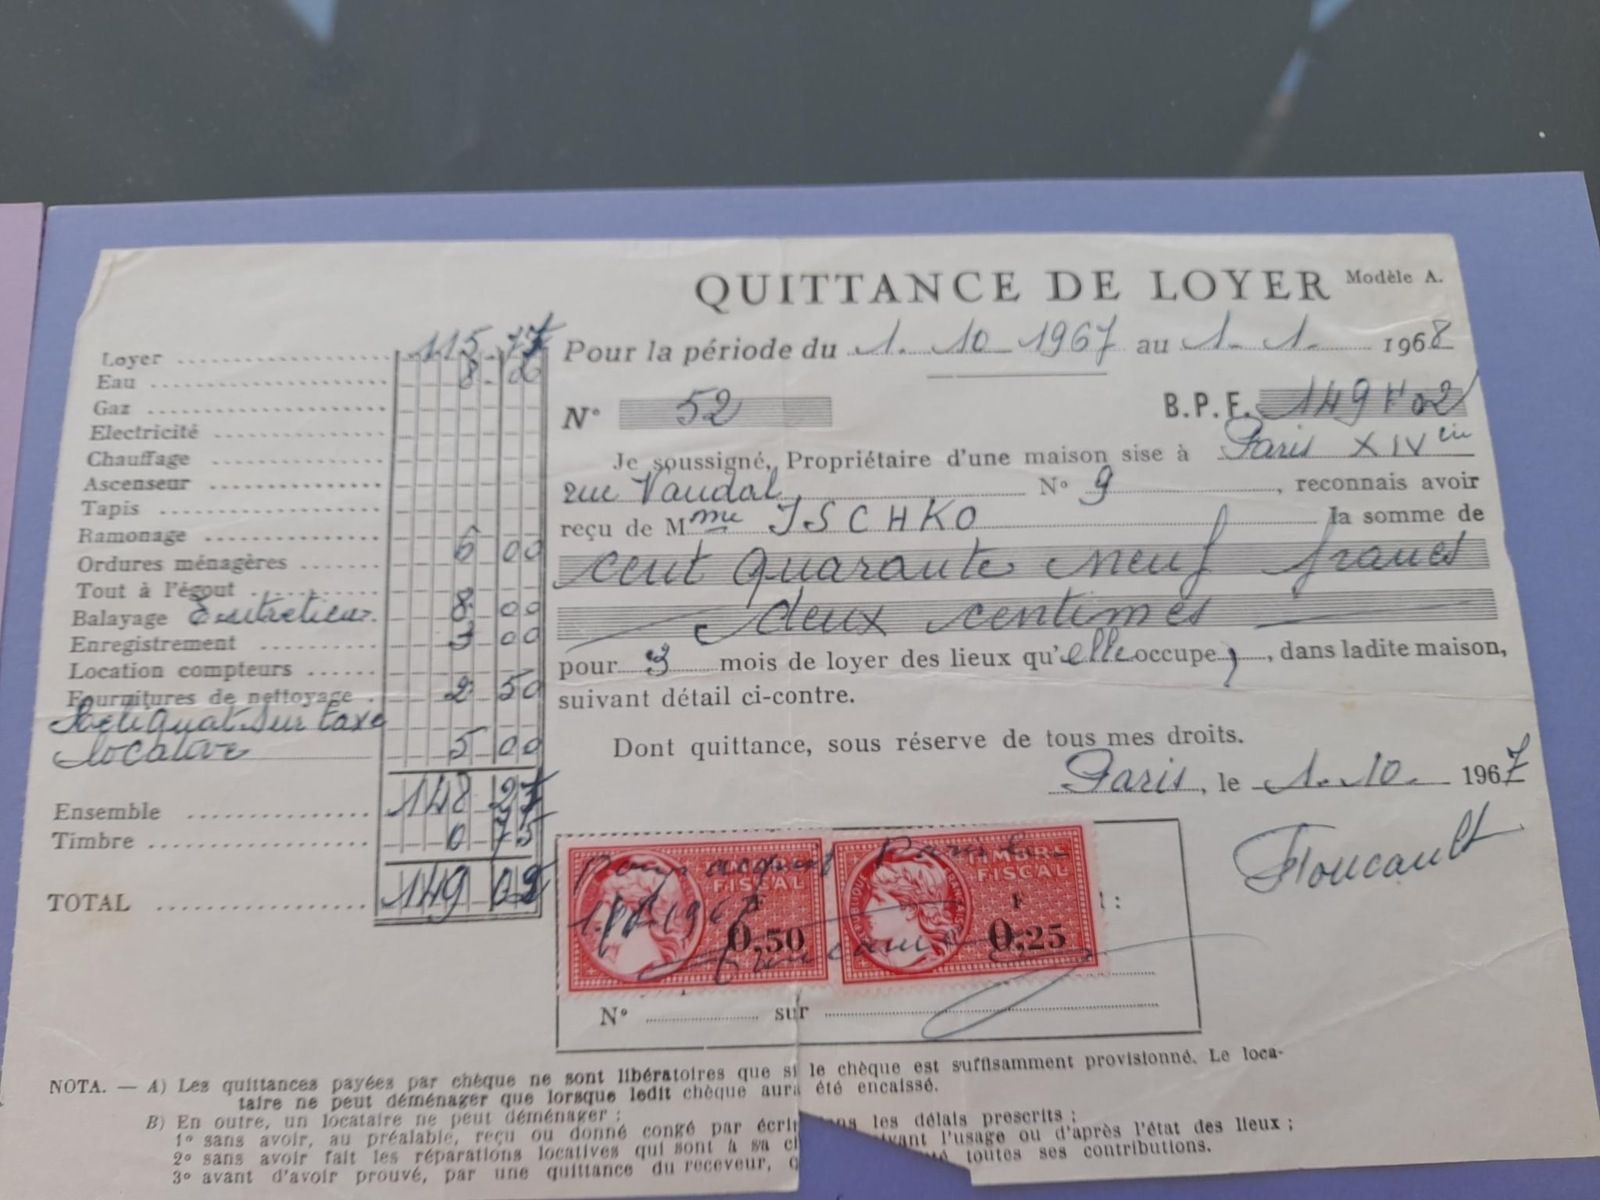 QUITTANCE DE LOYER Modèle A.
Pour la période du 1. 10 1967 au 1. 1. 1968
N° 52 B.P.F. 149 F 02
Je soussigné, Propriétaire d'une maison sise à Paris XIV
rue Vandal, N° 9, reconnais avoir
reçu de Mme ISCHKO la somme de
cent quarante neuf francs
deux centimes
pour 3 mois de loyer des lieux qu'elle occupe, dans ladite maison,
suivant détail ci-contre.
Dont quittance, sous réserve de tous mes droits.
Paris, le 1. 10. 1967
Foucault
Loyer 115 77
Eau 8
Gaz
Electricité
Chauffage
Ascenseur
Tapis
Ramonage
Ordures ménagères 6 00
Tout à l'égout
Balayage Entretien 8 00
Enregistrement 3 00
Location compteurs
Fournitures de nettoyage 2 50
Reliquat sur taxe
locative 5 00
Ensemble 148 27
Timbre 0 75
TOTAL 149 02
Pour acquit Paris le
1.10.1967
TIMBRE
FISCAL
F
0,50
TIMBRE
FISCAL
F
0,25
N° sur
NOTA. — A) Les quittances payées par chèque ne sont libératoires que si le chèque est suffisamment provisionné. Le loca-
taire ne peut déménager que lorsque ledit chèque aura été encaissé.
B) En outre, un locataire ne peut déménager :
1° sans avoir, au préalable, reçu ou donné congé par écrit les délais prescrits ;
2° sans avoir fait les réparations locatives qui sont à sa l'usage ou d'après l'état des lieux ;
3° avant d'avoir prouvé, par une quittance du receveur, toutes ses contributions.